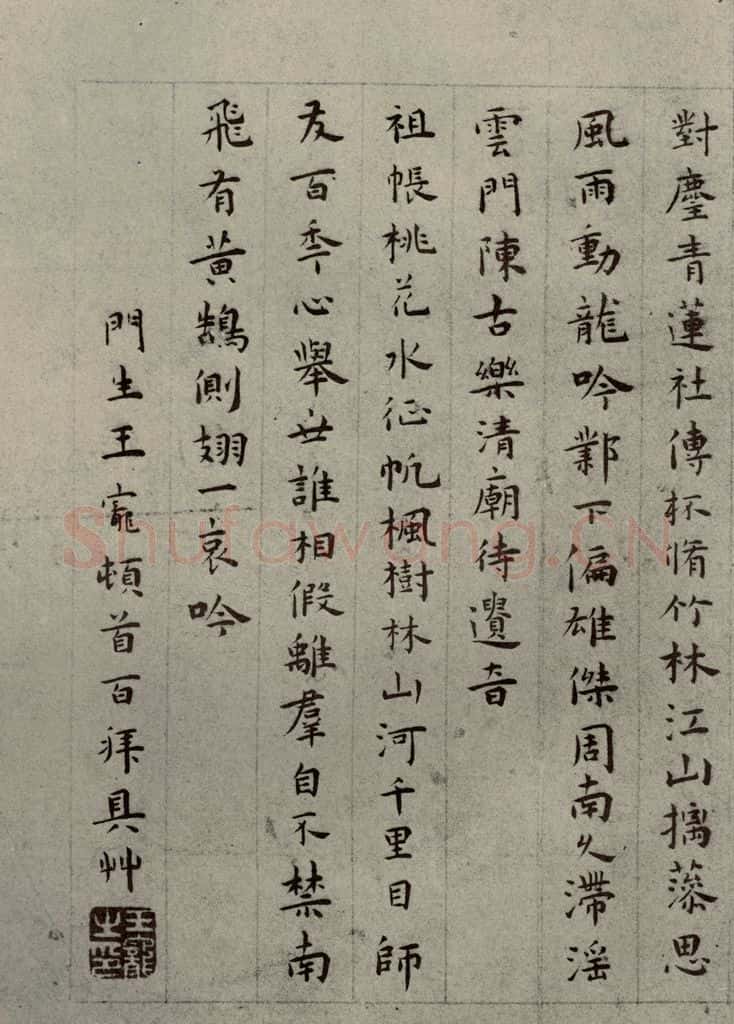 對麈青蓮社傳杯脩竹林江山摛藻思
風雨動龍吟鄴下偏雄傑周南久滯淫
雲門陳古樂清廟待遺音
祖帳桃花水征帆楓樹林山河千里目師
友百年心舉世誰相假離羣自不禁南
飛有黃鵠側翅一哀吟
門生王寵頓首百拜具艸
王寵之印
Shufawang.CN